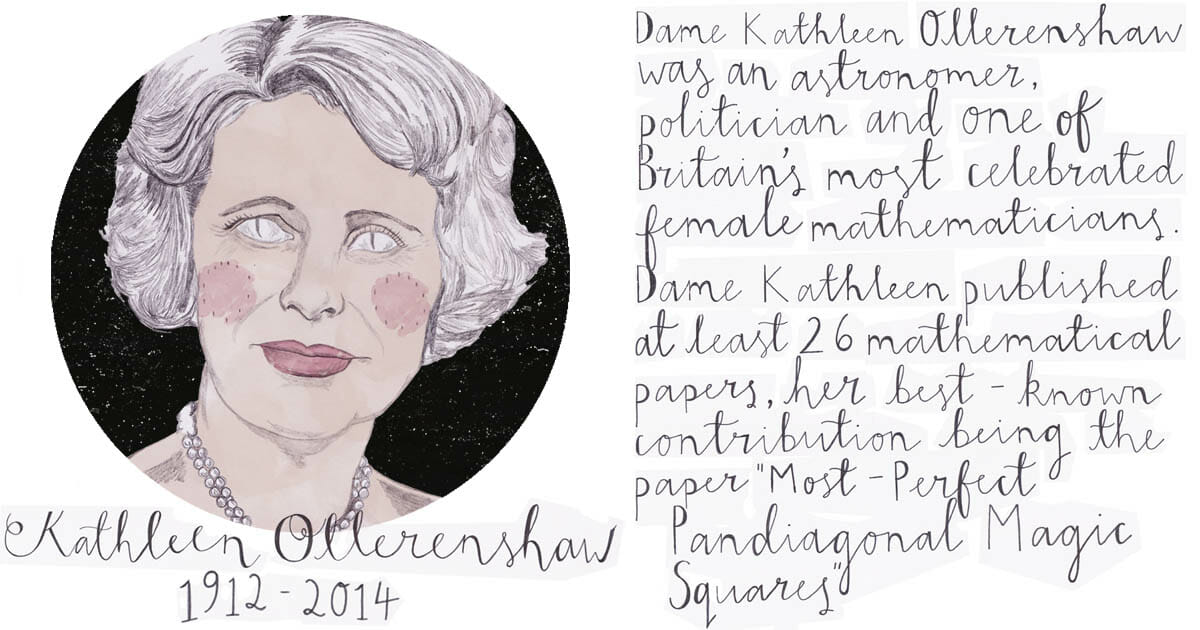 Kathleen Ollerenshaw
1912-2014
Dame Kathleen Ollerenshaw
was an astronomer,
politician and one of
Britain's most celebrated
female mathematicians.
Dame Kathleen published
at least 26 mathematical
papers, her best-known
contribution being the
paper "Most-Perfect
Pandiagonal Magic
Squares"